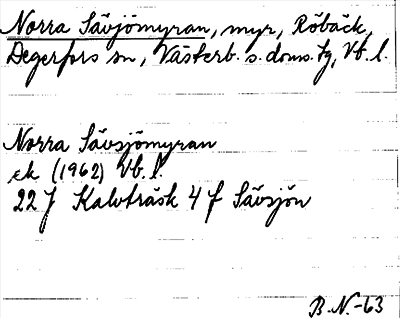 Norra Sävjömyran, myr, Röbäck,
Degerfors sn, Västerb. s. doms. tg, Vb. l.
Norra Sävsjömyran
ek (1962) Vb. l.
22 J Kalvträsk 4 f Sävsjön
B. N. -63